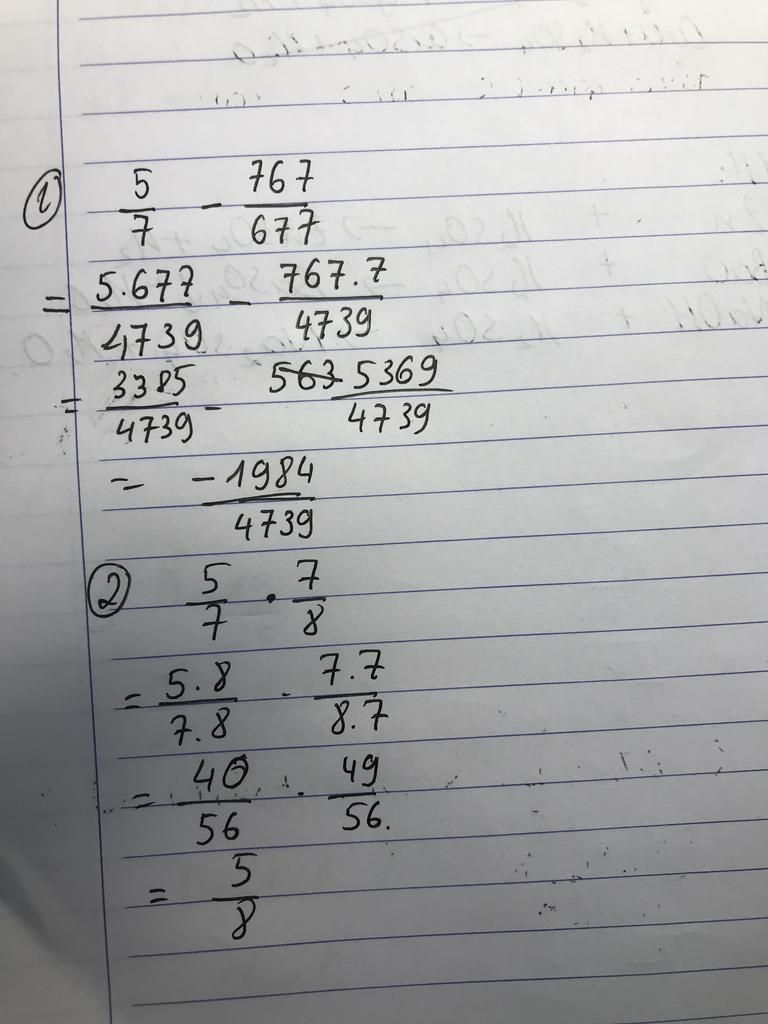 ① 5/7 - 767/677
= 5.677/4739 - 767.7/4739
= 3385/4739 - 5369/4739
= -1984/4739
② 5/7 . 7/8
= 5.8/7.8 . 7.7/8.7
= 40/56 . 49/56.
= 5/8